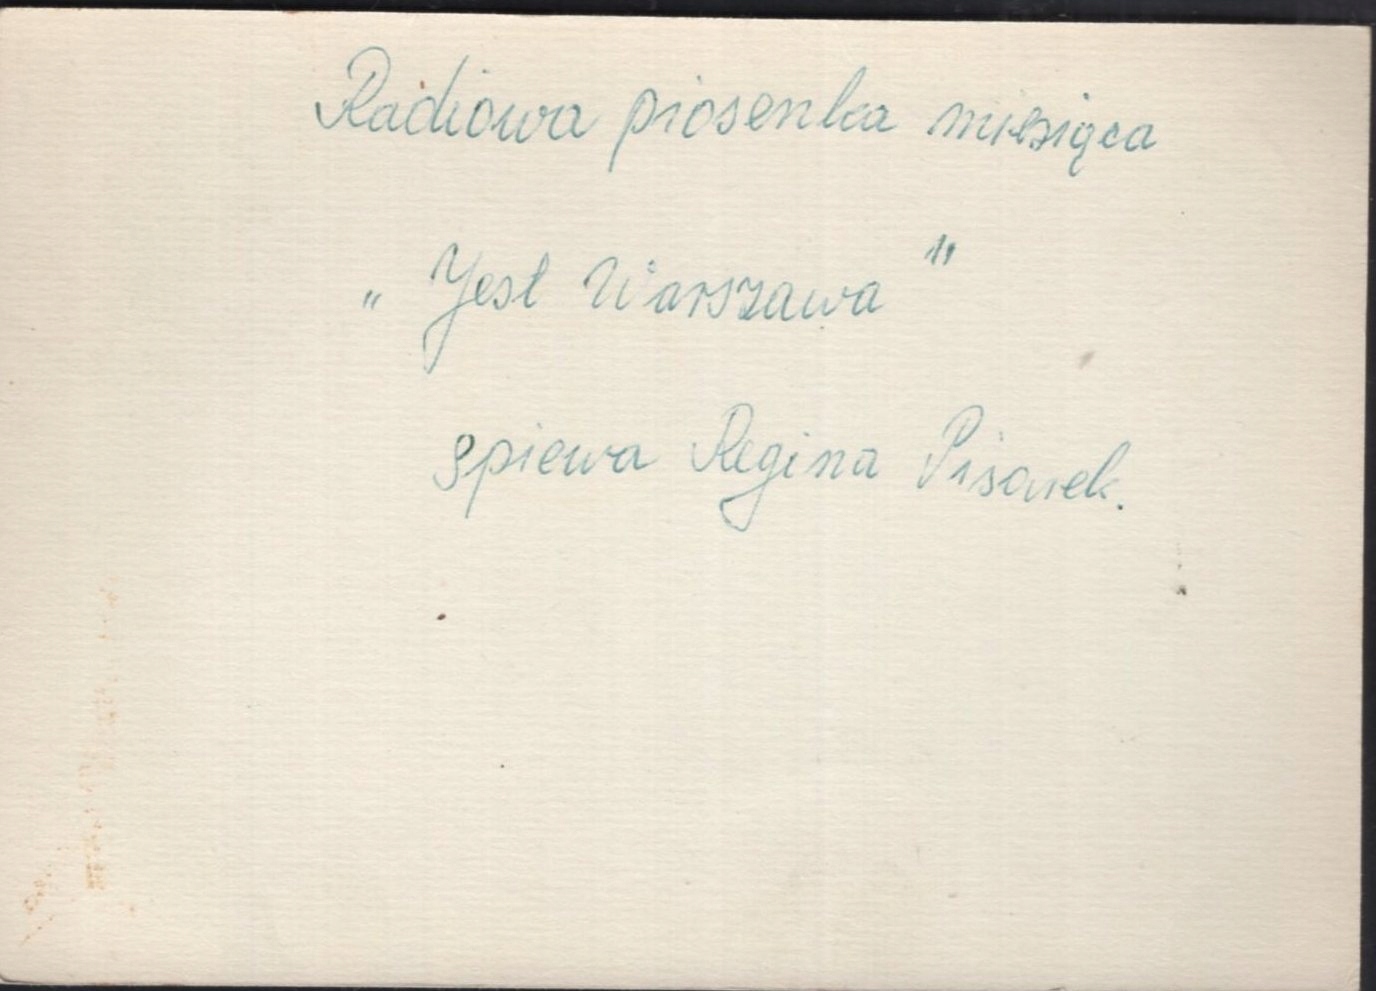 Radiowa piosenka miesiąca
„Jest Warszawa"
śpiewa Regina Pisarek.